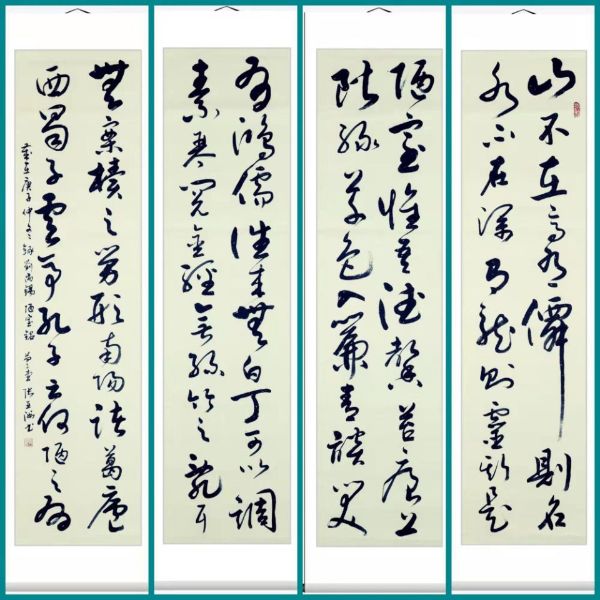 山不在高有僊則名
水不在深有龍則靈斯是
陋室惟吾德馨苔痕上
階綠草色入簾青談笑
有鴻儒往來無白丁可以調
素琴閱金經無絲竹之亂耳
無案牘之勞形南陽諸葛廬
西蜀子雲亭孔子云何陋之有
歲在庚子仲冬錄劉禹錫陋室銘 張 書